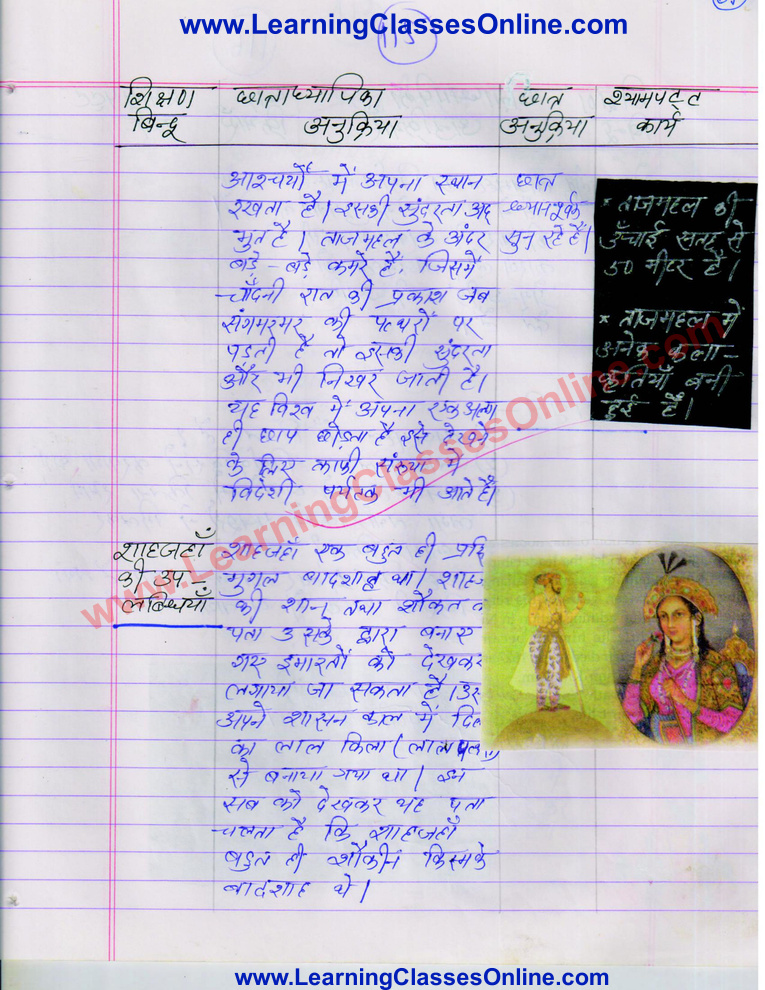 www.LearningClassesOnline.com
शिक्षण बिन्दू
छात्राध्यापिका अनुक्रिया
छात्र अनुक्रिया
श्यामपट्ट कार्य
आश्चर्यों में अपना स्थान
रखता है। इसकी सुंदरता अद
भुत है। ताजमहल के अंदर
बड़े - बड़े कमरे हैं, जिसमें
चाँदनी रात की प्रकाश जब
संगमरमर की पत्थरों पर
पड़ती है तो इसकी सुंदरता
और भी निखर जाती है।
यह विश्व में अपना एक अलग
ही छाप छोड़ता है इसे देखने
के लिए काफी संख्या में
विदेशी पर्यटक भी आते है।
छात्र
ध्यानपूर्वक
सुन रहे हैं।
* ताजमहल की
ऊँचाई सतह से
50 मीटर है।
* ताजमहल में
अनेक कला -
कृतियाँ बनी
हुई हैं।
शाहजहाँ
की उप -
लब्धियाँ
शाहजहाँ एक बहुत ही
मुगल बादशाह था।
की शान तथा शौकत
पता उसके द्वारा बनाए
गए इमारतों को देखकर
लगाया जा सकता है।
अपने शासन काल में
का लाल किला (लाल
से बनाया गया था।
सब को देखकर यह पता
चलता है कि शाहजहाँ
बहुत ही शौकीन किस्मके
बादशाह थे।
www.LearningClassesOnline.com
www.LearningClassesOnline.com